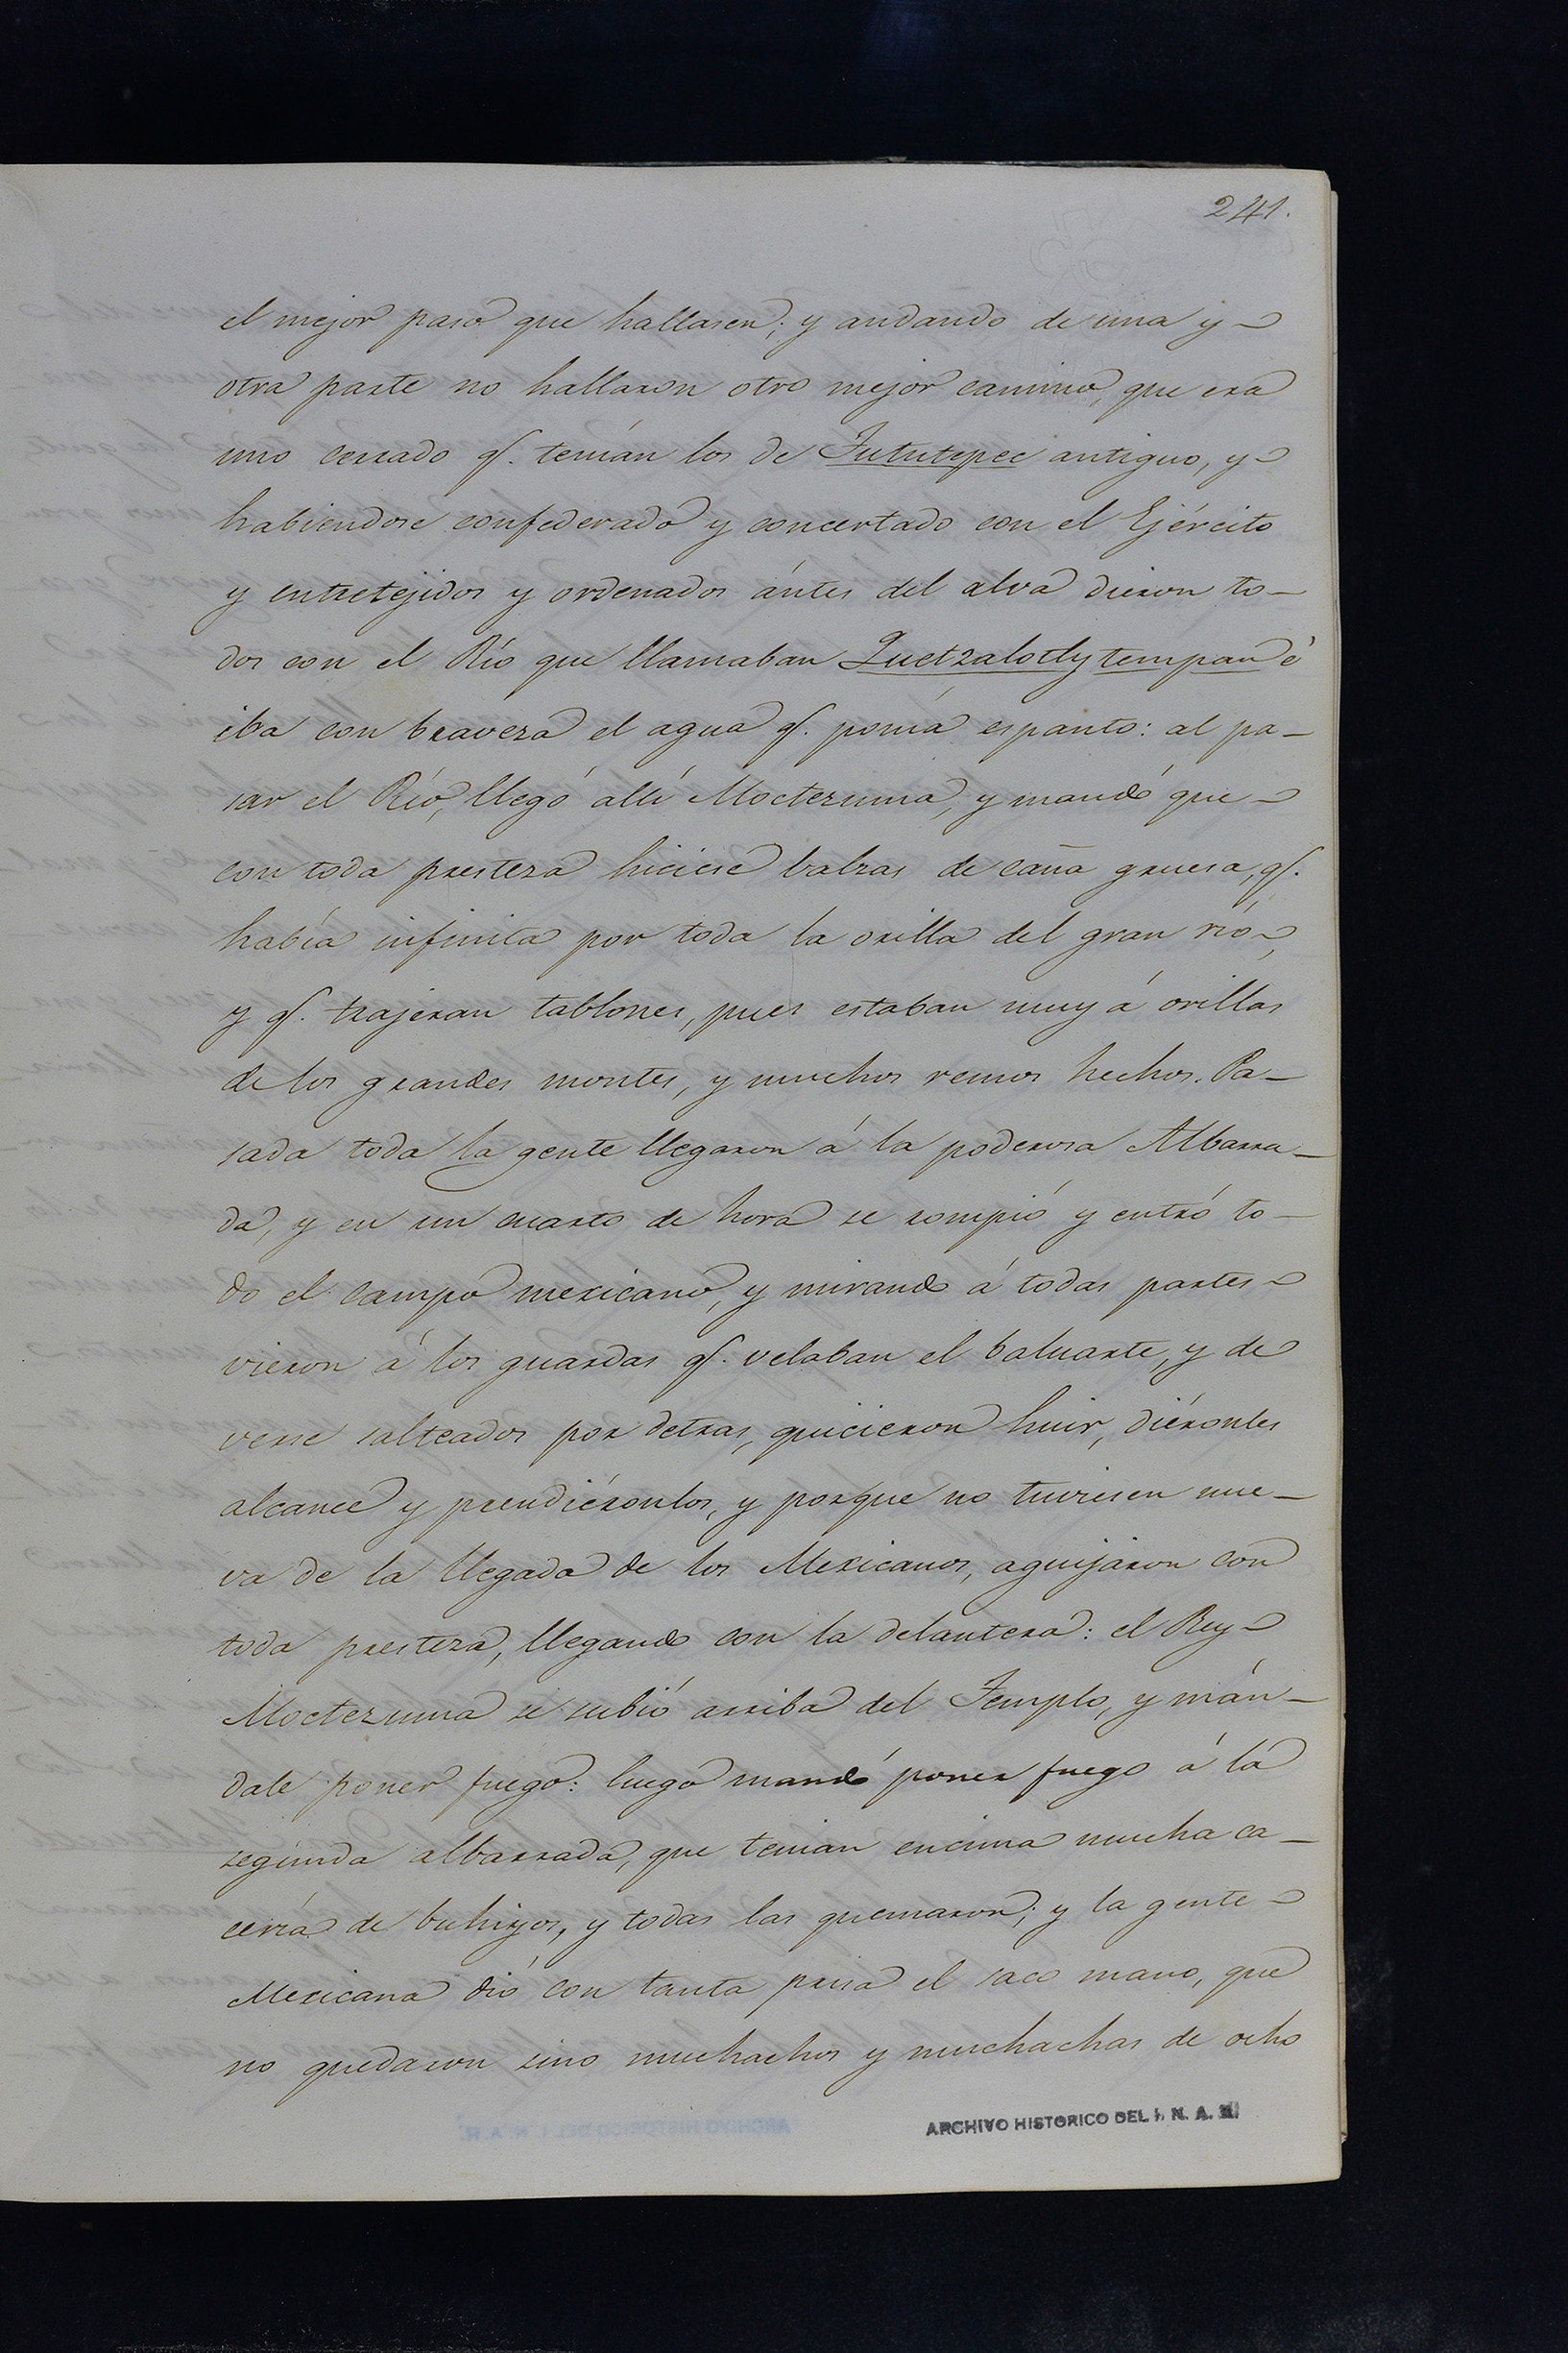 241.
el mejor paso que hallasen; y andando de una y
otra parte no hallaron otro mejor camino, que era
uno cerrado q.e tenían los de Tututepec antiguo, y
habiendose confederado y concertado con el Ejército
y entretejidos y ordenados ántes del alva dieron to-
dos con el Río que llamaban Quetzalotlytempan é
iba con braveza el agua q.e ponía espanto: al pa-
sar el Río, llegó allí Moctezuma, y mandó que
con toda presteza hiciese balzas de caña gruesa, q.e
había infinita por toda la orilla del gran río,
y q.e trajeran tablones, pues estaban muy á orillas
de los grandes montes, y muchos remos hechos. Pa-
sada toda la gente llegaron á la poderosa Albarra-
da, y en un cuarto de hora se rompió y entró to-
do el campo mexicano, y mirando á todas partes
vieron á los guardas q.e velaban el baluarte, y de
verse salteados por detras, quicieron huir, diéronles
alcance y prendiéronlos, y porque no tuviesen nue-
va de la llegada de los Mexicanos, aguijaron con
toda presteza, llegando con la delantera: el Rey
Moctezuma se subió arriba del Templo, y mán-
dale poner fuego: luego mandó poner fuego á la
segunda albarrada, que tenian encima mucha ca-
cería de buhiyos, y todas las quemaron; y la gente
Mexicana dió con tanta prisa el saco mano, que
no quedaron sino muchachos y muchachas de ocho
ARCHIVO HISTORICO DEL I. N. A. H.